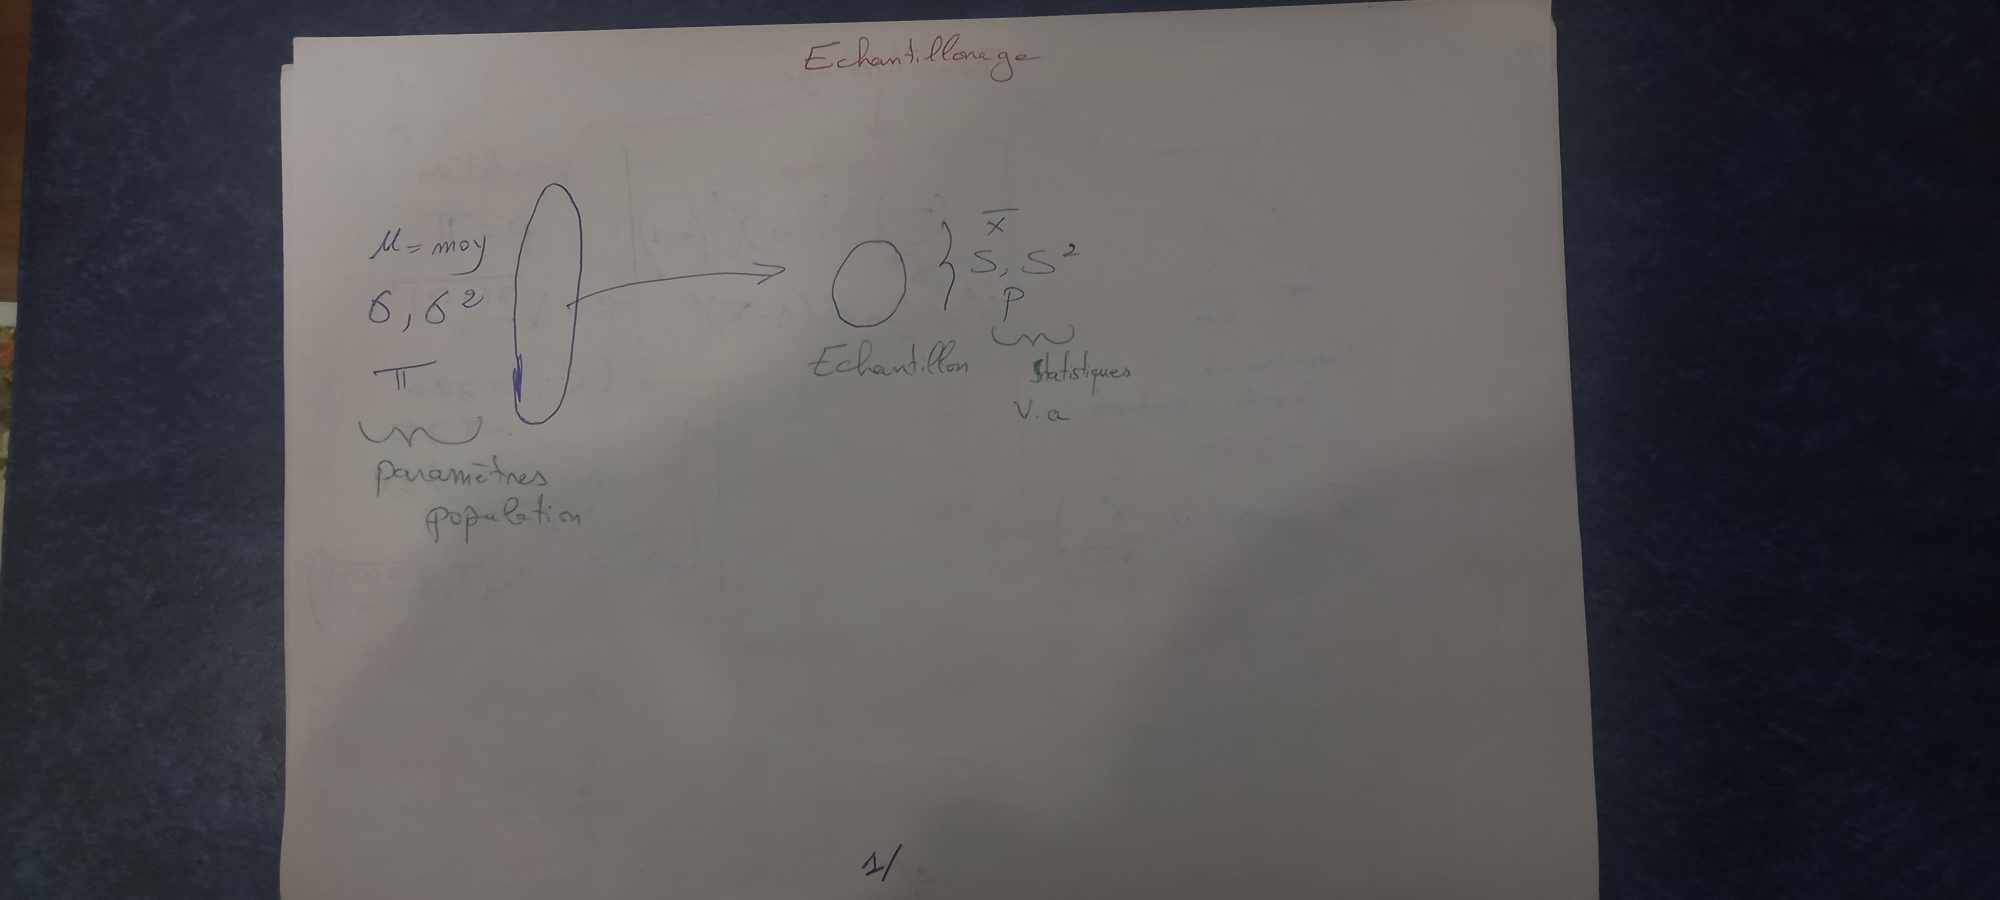 Echantillonage
μ = moy
σ, σ²
π
paramètres
population
x̄
S, S²
p
Echantillon
statistiques
V.a
1/